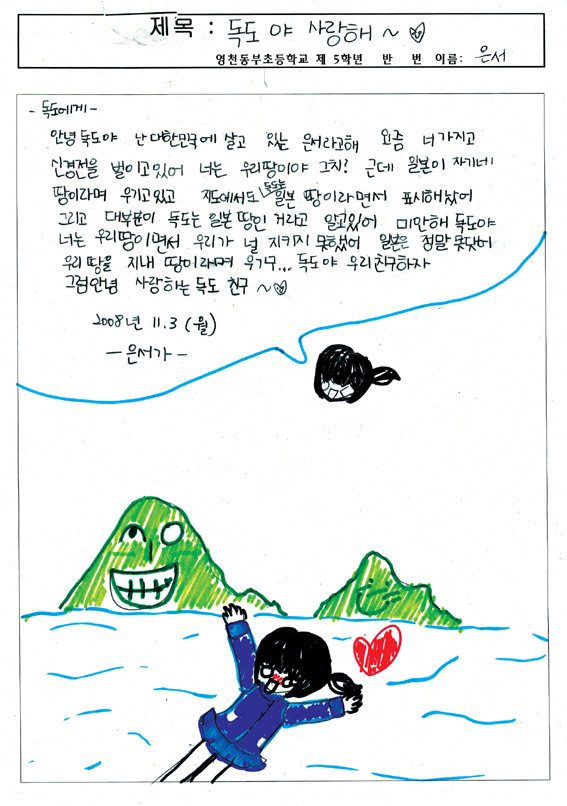 제목 : 독도야 사랑해 ~
영천동부초등학교 제 5학년 반 번 이름: 은서
- 독도에게 -
안녕 독도야 난 대한민국에 살고 있는 은서라고해 요즘 너 가지고
신경전을 벌이고있어 너는 우리땅이야 그치? 근데 일본이 자기네
땅이라며 우기고있고 지도에서도 독도는 일본 땅이라면서 표시해놨어
그리고 대부분이 독도는 일본 땅인 거라고 알고있어 미안해 독도야
너는 우리땅이면서 우리가 널 지키지 못했어 일본은 정말 못됐어
우리 땅을 지내 땅이라며 우기구... 독도야 우리친구하자
그럼안녕 사랑하는 독도 친구 ~
2008년 11.3 (월)
- 은서가 -